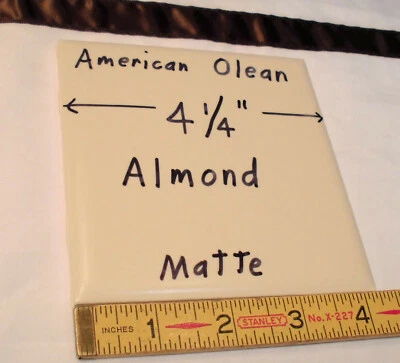 American Olean
4 1/4"
Almond
Matte
INCHES 1 2 STANLEY 3 No. X-227 4